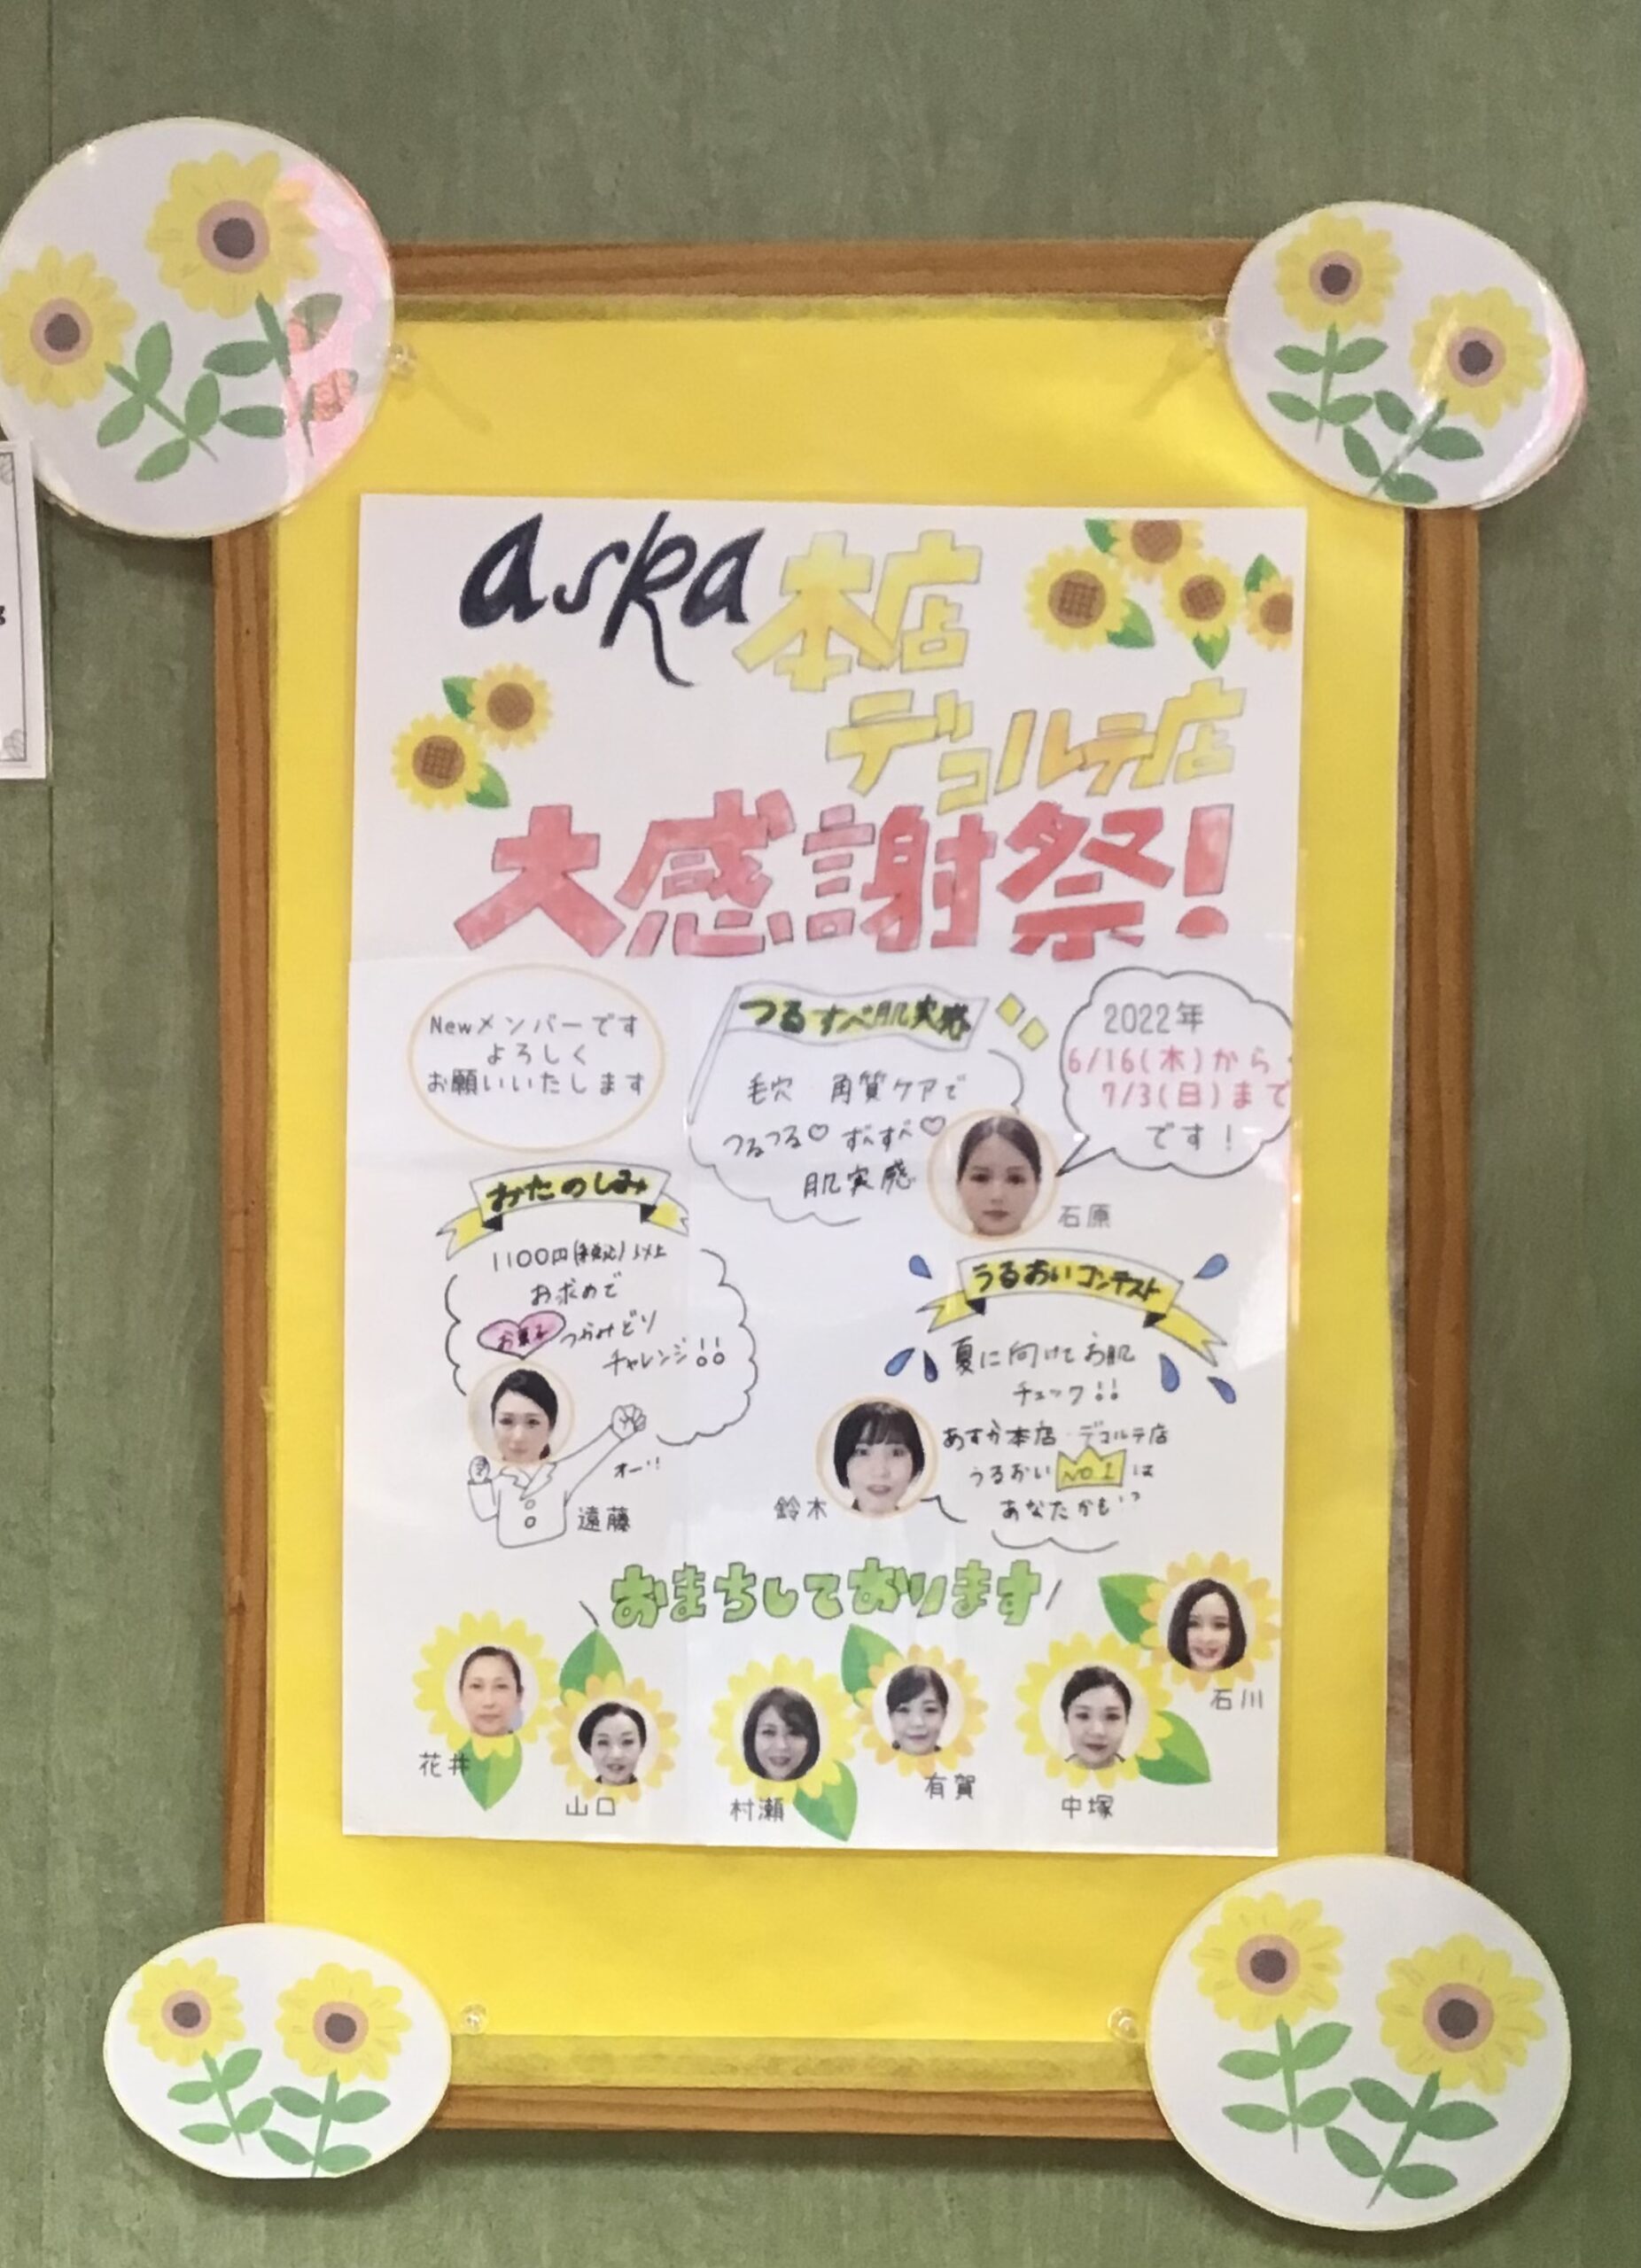 aska 本店
デコルテ店
大感謝祭!
Newメンバーです
よろしく
お願いいたします
つるすべ肌実感
毛穴 角質ケアで
つるつる♡ すべすべ♡
肌実感
2022年
6/16(木)から
7/3(日)まで
です!
石原
おたのしみ
1100円(税込)以上
お求めで
お菓子 つかみどり
チャレンジ!!
オー!!
遠藤
うるおいコンテスト
夏に向けてお肌
チェック!!
あすか本店・デコルテ店
うるおい NO.1 は
あなたかも!?
鈴木
おまちしております
石川
花井
山口
村瀬
有賀
中塚